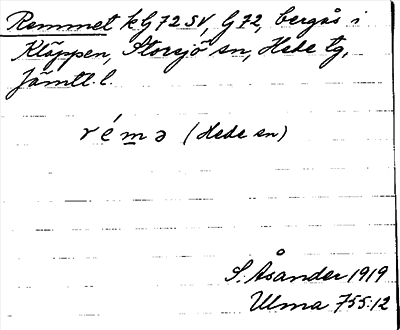 Remmet kG72SV, G72, bergås i
Kläppen, Storsjö sn, Hede tg,
Jämtl. l.
rémə (Hede sn)
S. Åsander 1919
Ulma 755:12